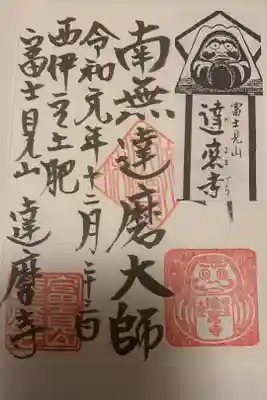 富士見山
達磨寺
南無達磨大師
令和元年十二月二十三日
西伊豆土肥
富士見山 達摩寺